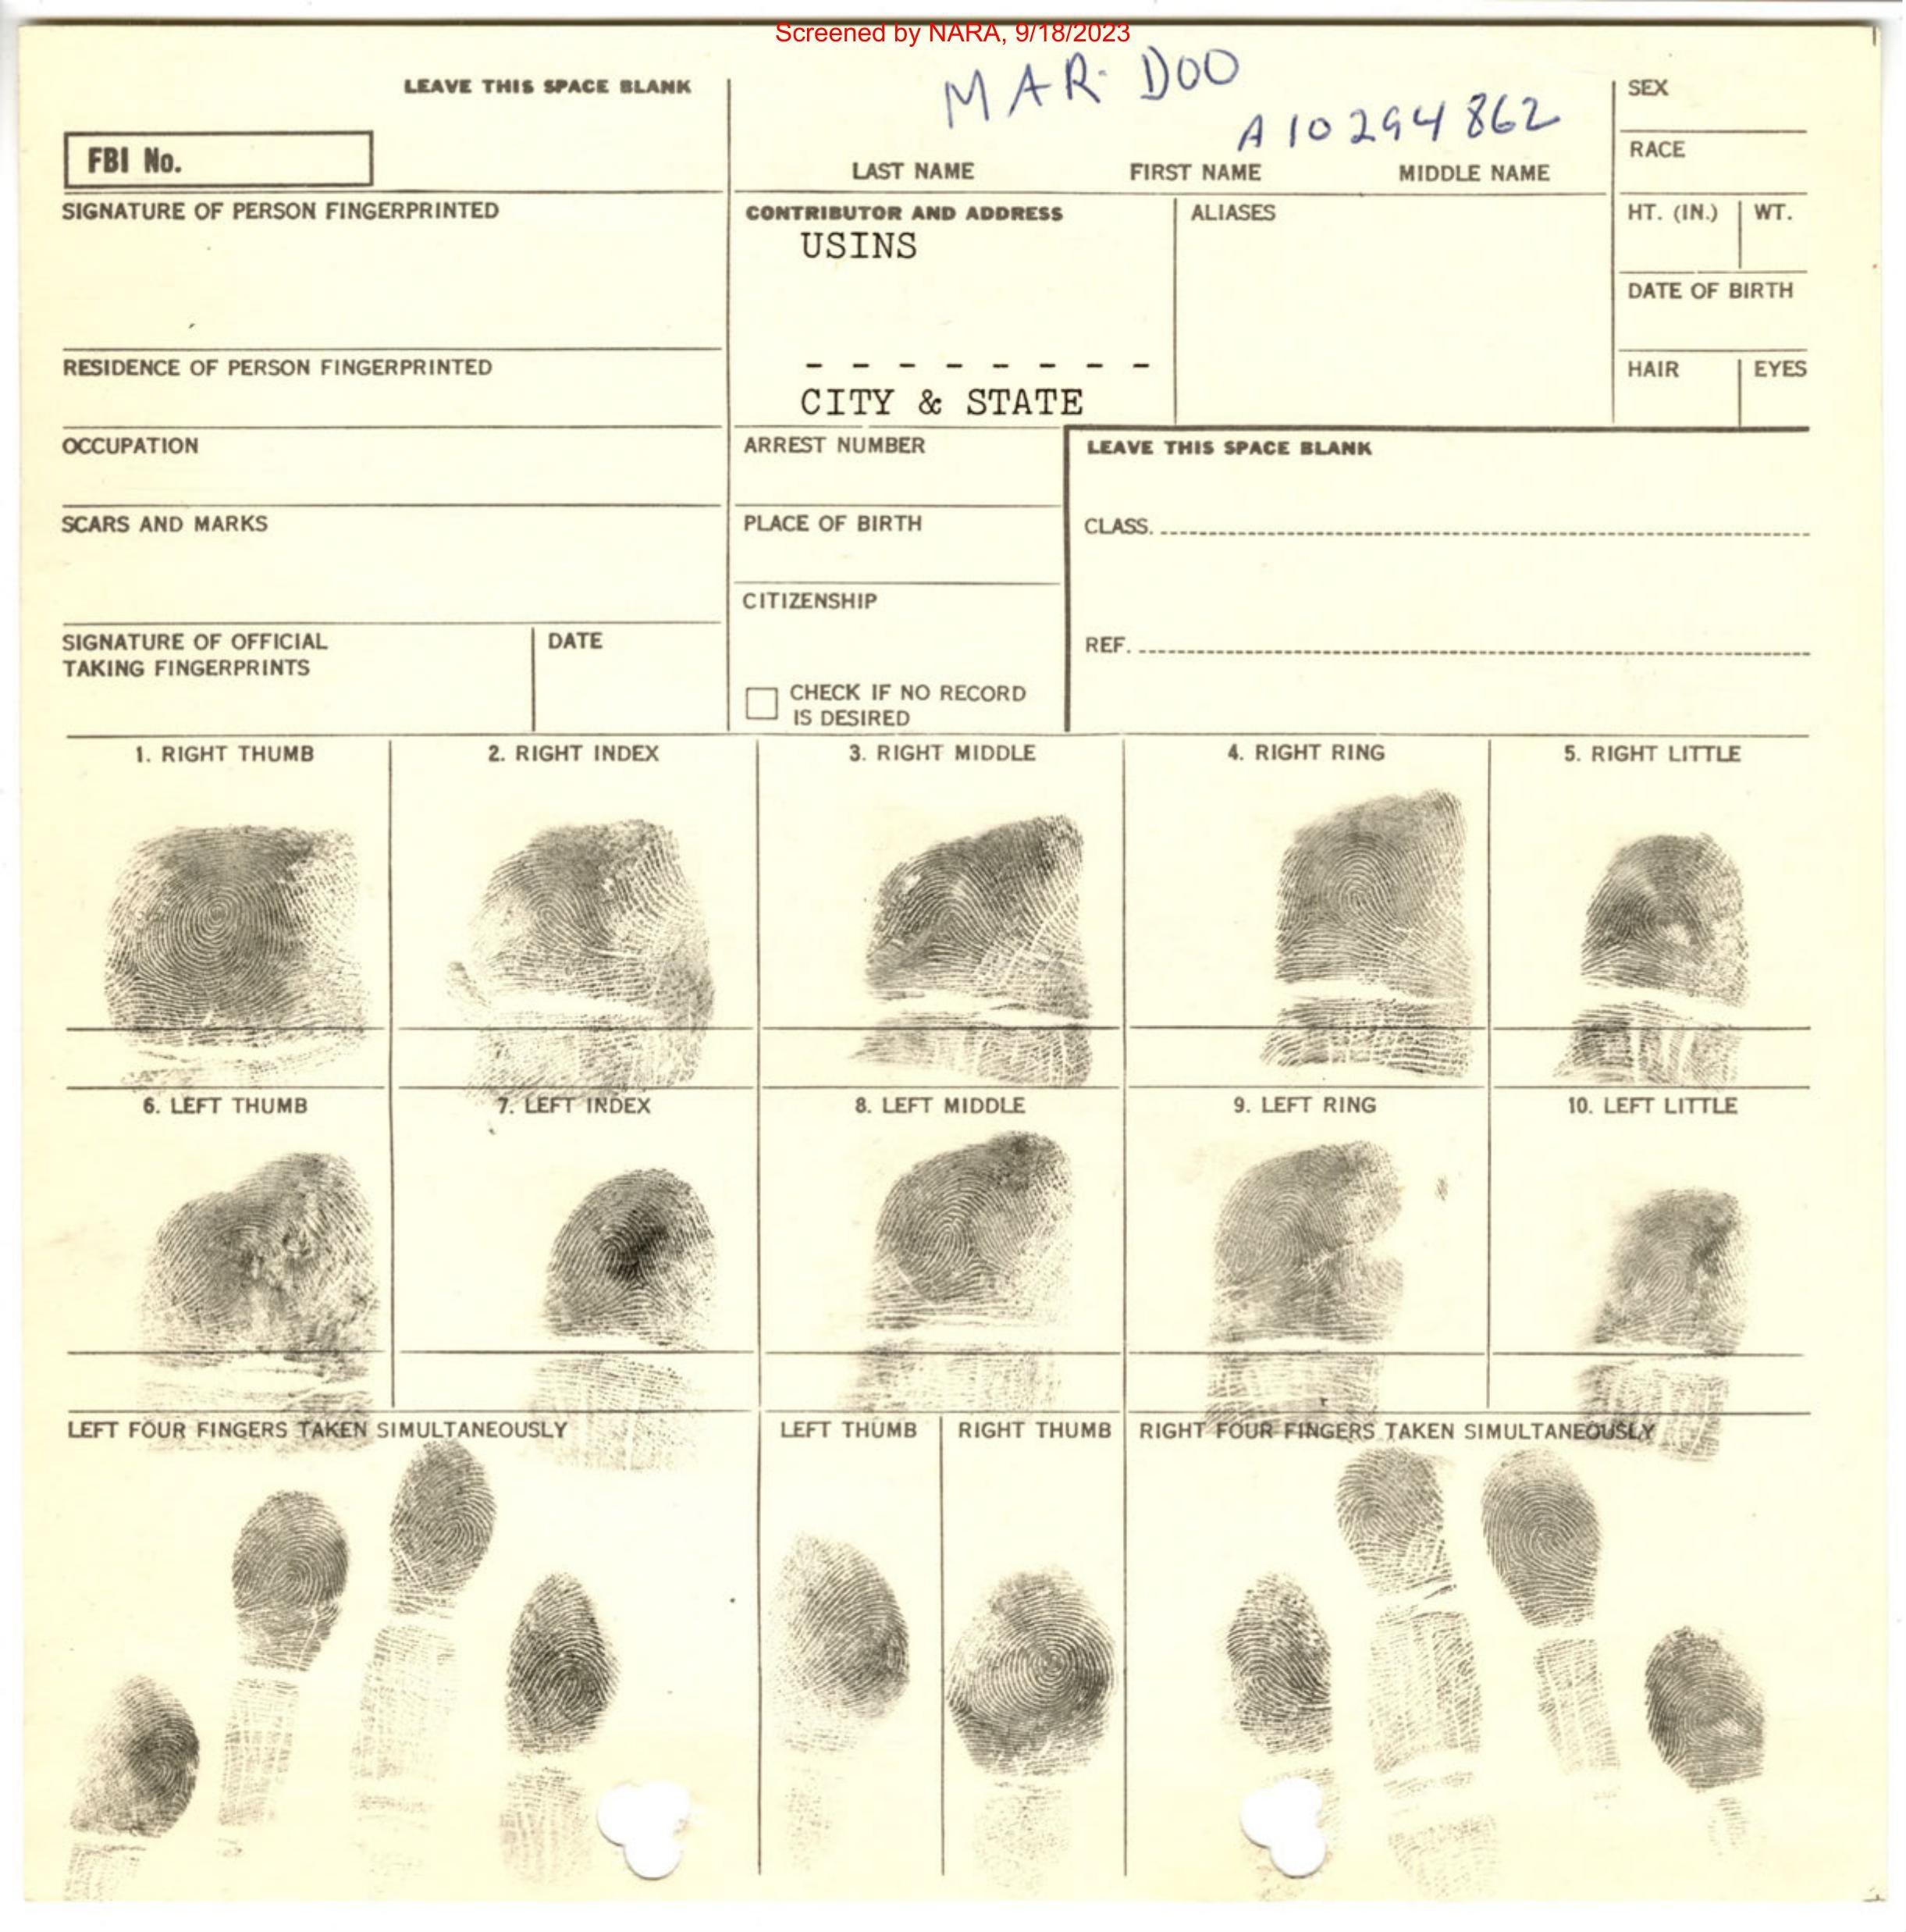 Screened by NARA, 9/18/2023
MAR DOO
A10294862
LEAVE THIS SPACE BLANK
FBI No.
LAST NAME FIRST NAME MIDDLE NAME
SEX
RACE
SIGNATURE OF PERSON FINGERPRINTED
CONTRIBUTOR AND ADDRESS
USINS
ALIASES
HT. (IN.) WT.
DATE OF BIRTH
- - - - - - - -
CITY & STATE
RESIDENCE OF PERSON FINGERPRINTED
HAIR EYES
OCCUPATION
ARREST NUMBER
LEAVE THIS SPACE BLANK
SCARS AND MARKS
PLACE OF BIRTH
CLASS.
CITIZENSHIP
SIGNATURE OF OFFICIAL
TAKING FINGERPRINTS
DATE
REF.
CHECK IF NO RECORD
IS DESIRED
1. RIGHT THUMB 2. RIGHT INDEX 3. RIGHT MIDDLE 4. RIGHT RING 5. RIGHT LITTLE
6. LEFT THUMB 7. LEFT INDEX 8. LEFT MIDDLE 9. LEFT RING 10. LEFT LITTLE
LEFT FOUR FINGERS TAKEN SIMULTANEOUSLY LEFT THUMB RIGHT THUMB RIGHT FOUR FINGERS TAKEN SIMULTANEOUSLY